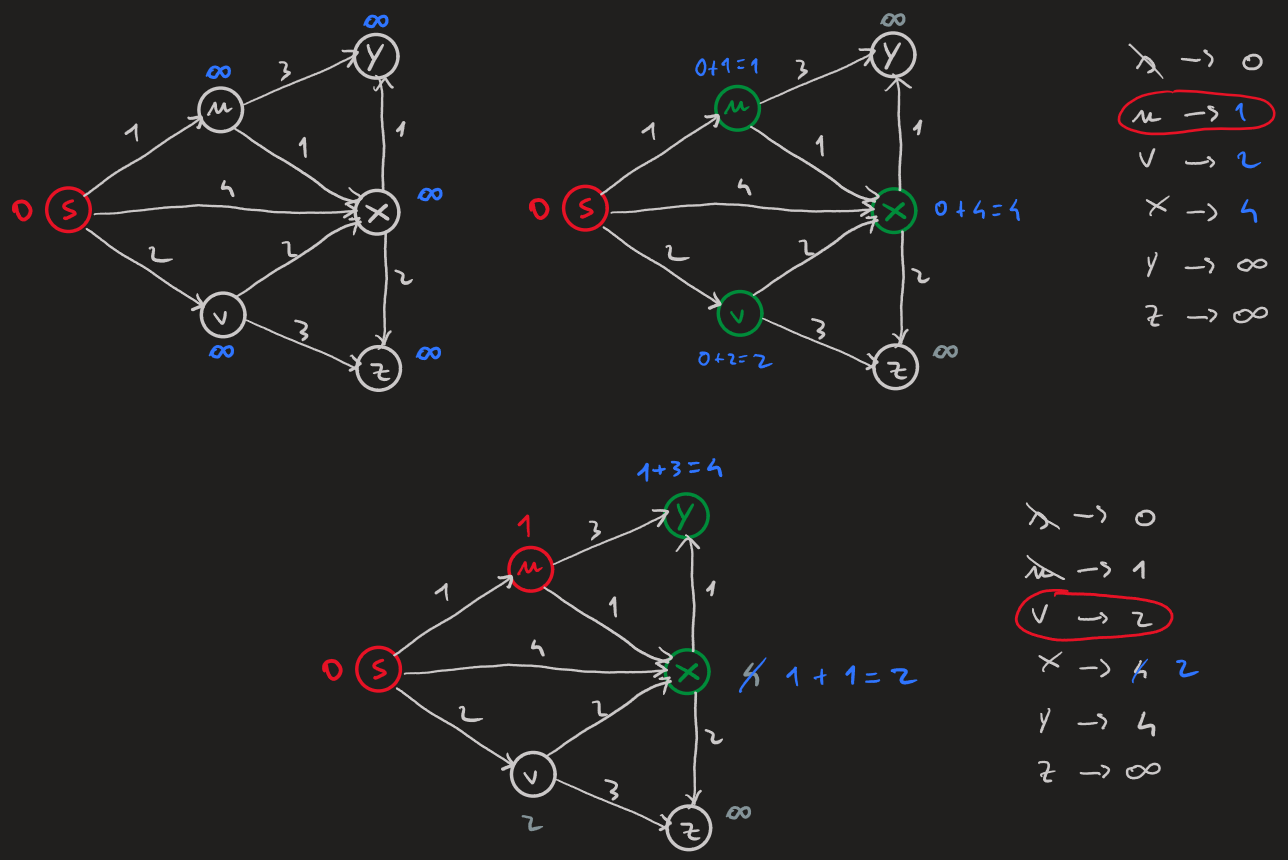 ∞
∞
3
y
u
1
1
1
0 s
4
x ∞
2
2
2
v
3
∞
z ∞
∞
0+1=1
3
y
u
1
1
1
0 s
4
x 0+4=4
2
2
2
v
3
0+2=2
z ∞
s → 0
u → 1
v → 2
x → 4
y → ∞
z → ∞
1+3=4
1
3
y
u
1
1
1
0 s
4
x 4 1+1=2
2
2
2
v
3
2
z ∞
s → 0
u → 1
v → 2
x → 4 2
y → 4
z → ∞